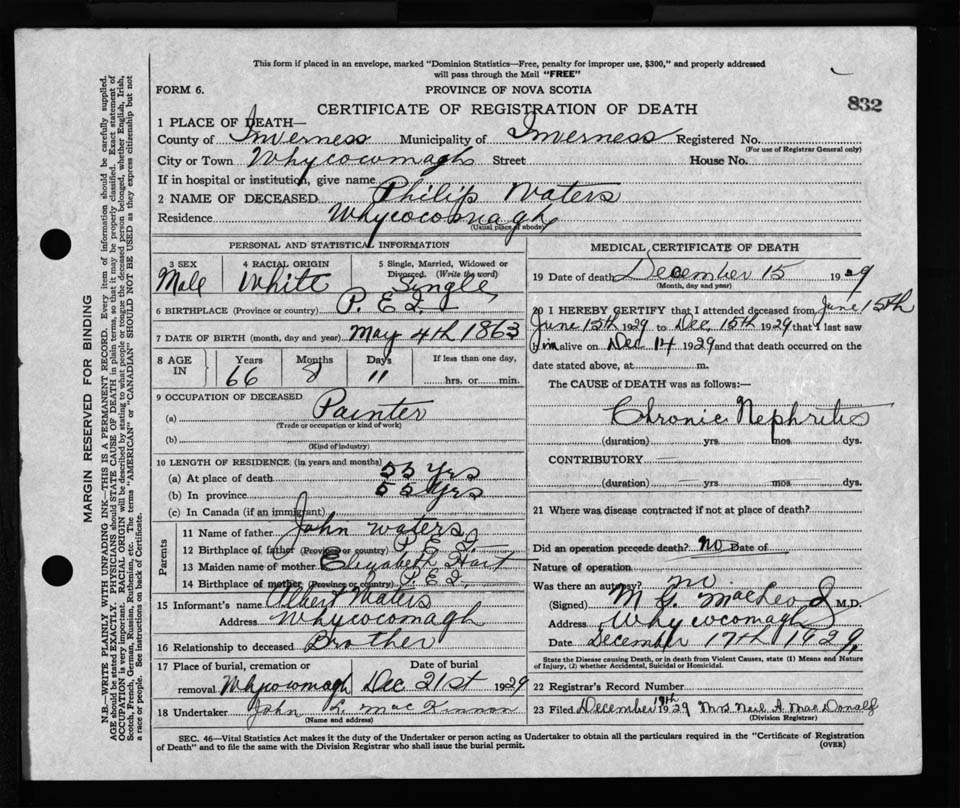 This form if placed in an envelope, marked "Dominion Statistics—Free, penalty for improper use, $300," and properly addressed
will pass through the Mail "FREE"
FORM 6.
PROVINCE OF NOVA SCOTIA
832
CERTIFICATE OF REGISTRATION OF DEATH
1 PLACE OF DEATH—
County of Inverness Municipality of Inverness Registered No.
(For use of Registrar General only)
City or Town Whycocomagh Street House No.
If in hospital or institution, give name
2 NAME OF DECEASED Philip Waters
Residence Whycocomagh
(Usual place of abode)
PERSONAL AND STATISTICAL INFORMATION
3 SEX
Male
4 RACIAL ORIGIN
White
5 Single, Married, Widowed or
Divorced. (Write the word)
Single
6 BIRTHPLACE (Province or country) P.E.I.
7 DATE OF BIRTH (month, day and year) May 4th 1863
8 AGE IN
Years Months Days
66 8 11
If less than one day,
hrs. or min.
9 OCCUPATION OF DECEASED
(a) Painter
(Trade or occupation or kind of work)
(b)
(Kind of industry)
10 LENGTH OF RESIDENCE (in years and months)
(a) At place of death 55 Yrs
(b) In province 55 Yrs
(c) In Canada (if an immigrant)
Parents
11 Name of father John Waters
12 Birthplace of father (Province or country) P.E.I.
13 Maiden name of mother Elizabeth Hart
14 Birthplace of mother (Province or country) P.E.I.
15 Informant's name Albert Waters
Address Whycocomagh
16 Relationship to deceased Brother
17 Place of burial, cremation or
removal Whycocomagh
Date of burial
Dec 21st 1929
18 Undertaker John L. MacKinnon
(Name and address)
MEDICAL CERTIFICATE OF DEATH
19 Date of death December 15 1929
(Month, day and year)
20 I HEREBY CERTIFY that I attended deceased from June 15th
June 15th 1929 to Dec, 15th 1929 that I last saw
him alive on Dec 14 1929 and that death occurred on the
date stated above, at m.
The CAUSE of DEATH was as follows:—
Chronic Nephritis
(duration) yrs mos dys.
CONTRIBUTORY
(duration) yrs mos dys.
21 Where was disease contracted if not at place of death?
Did an operation precede death? No Date of
Nature of operation
Was there an autopsy? no
(Signed) M. G. MacLeod M.D.
Address Whycocomagh
Date December 17th 1929.
State the Disease causing Death, or in death from Violent Causes, state (1) Means and Nature
of Injury, (2) whether Accidental, Suicidal or Homicidal.
22 Registrar's Record Number
23 Filed December 19th 1929 Mrs Neil A. MacDonald
(Division Registrar)
SEC. 46—Vital Statistics Act makes it the duty of the Undertaker or person acting as Undertaker to obtain all the particulars required in the "Certificate of Registration
of Death" and to file the same with the Division Registrar who shall issue the burial permit.
(OVER)
MARGIN RESERVED FOR BINDING
N.B.—WRITE PLAINLY WITH UNFADING INK—THIS IS A PERMANENT RECORD. Every item of information should be carefully supplied.
AGE should be stated EXACTLY. PHYSICIANS should STATE CAUSE OF DEATH in plain terms, so that it may be properly classified. Exact statement of
OCCUPATION is very important. RACIAL ORIGIN will be described by stating to what people or tongue the deceased person belonged, whether English, Irish,
Scotch, French, German, Russian, Ruthenian, etc. The terms "AMERICAN" or "CANADIAN" SHOULD NOT BE USED as they express citizenship but not
a race or people. See instructions on back of Certificate.